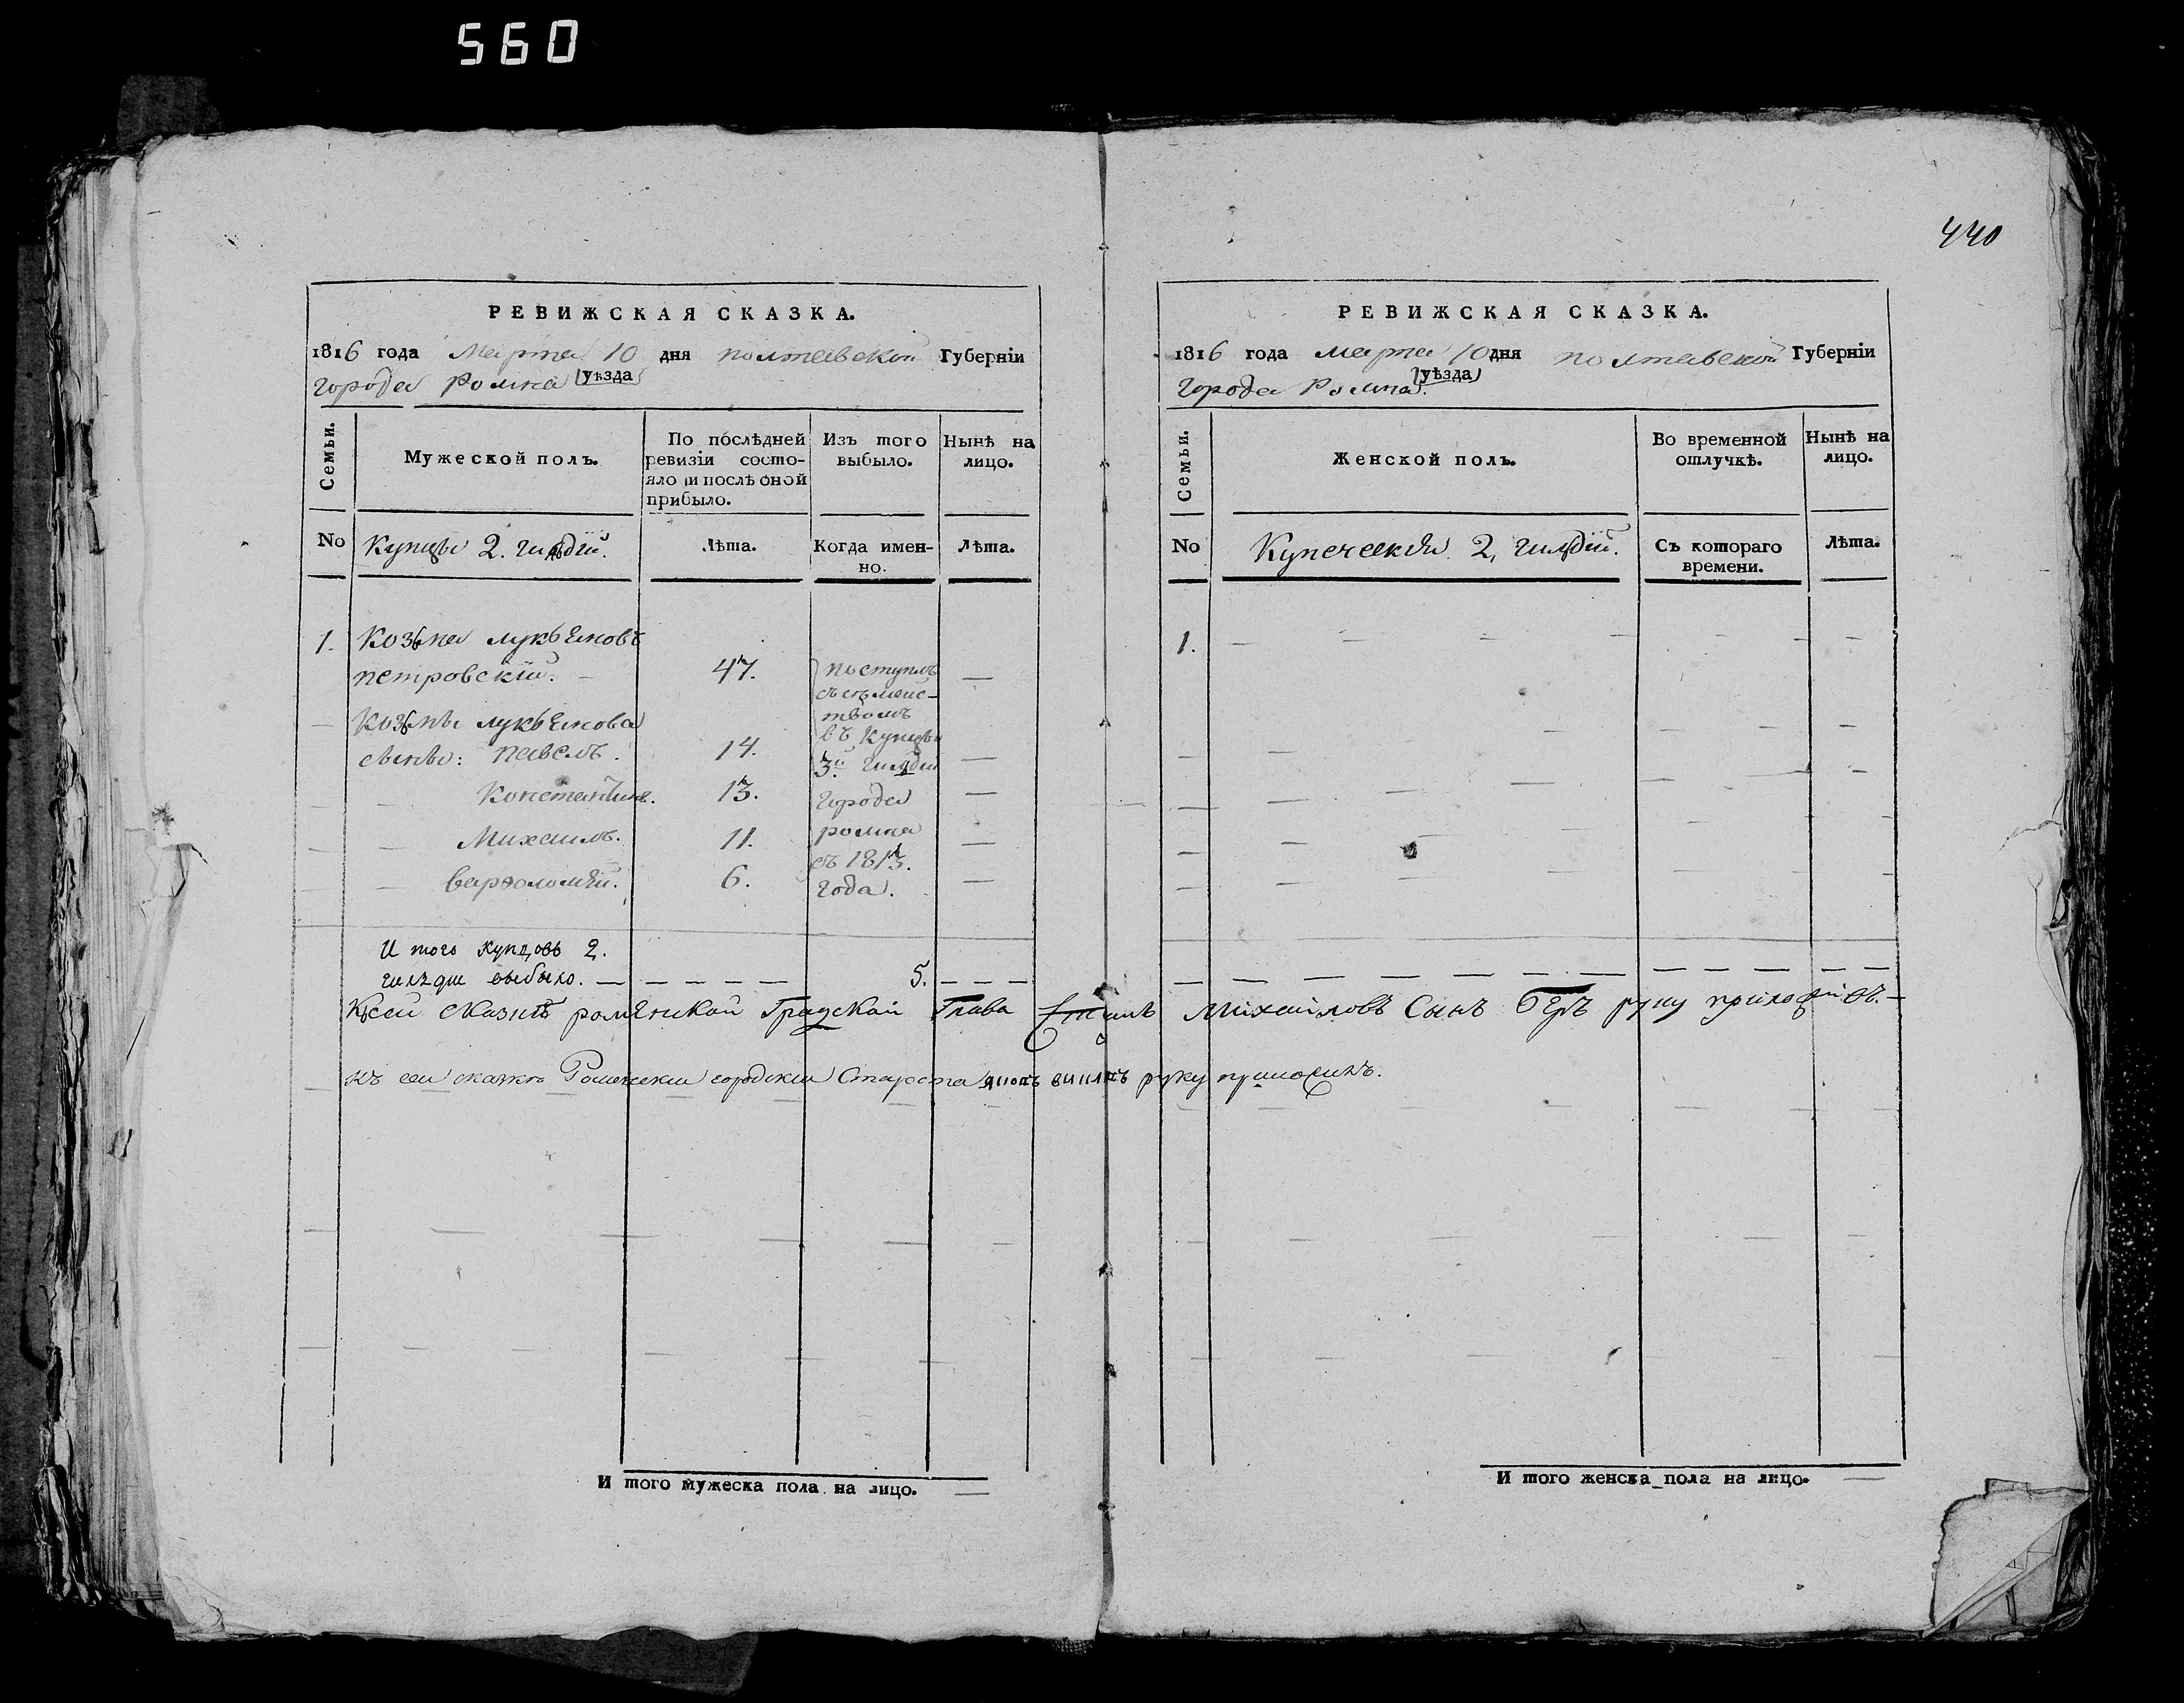 560
440
РЕВИЖСКАЯ СКАЗКА.
1816 года Марта 10 дня полтавской Губерніи
города Ромна (уѣзда)
Семьи.
Мужеской полъ.
По послѣдней
ревизіи состо-
яло и послѣ оной
прибыло.
Изъ того
выбыло.
Нынѣ на
лицо.
No
Купцы 2. гильдіи.
Лѣта.
Когда имен-
но.
Лѣта.
1. Козьма лукьяновъ
петровскій. 47. поступилъ
съ семейс-
твомъ
Козьмы лукьянова
въ купцы
сыны: павелъ. 14. 3й гильдіи
Константинъ. 13. города
Михаилъ. 11. ромна
съ 1813.
варѳоломѣй. 6. года.
И того купцовъ 2.
гильдии выбыло. 5.
Ксей сказкѣ роменской Градской Глава Михайловъ Сынъ руку приложилъ.
къ сеи сказки Роменскии городскии Староста руку приложилъ.
И того мужеска пола на лицо.
РЕВИЖСКАЯ СКАЗКА.
1816 года марта 10 дня полтавской Губерніи
города Ромна (уѣзда)
Семьи.
Женской полъ.
Во временной
отлучкѣ.
Нынѣ на
лицо.
No
Купеческія 2, гильдіи.
Съ котораго
времени.
Лѣта.
1.
И того женска пола на лицо.